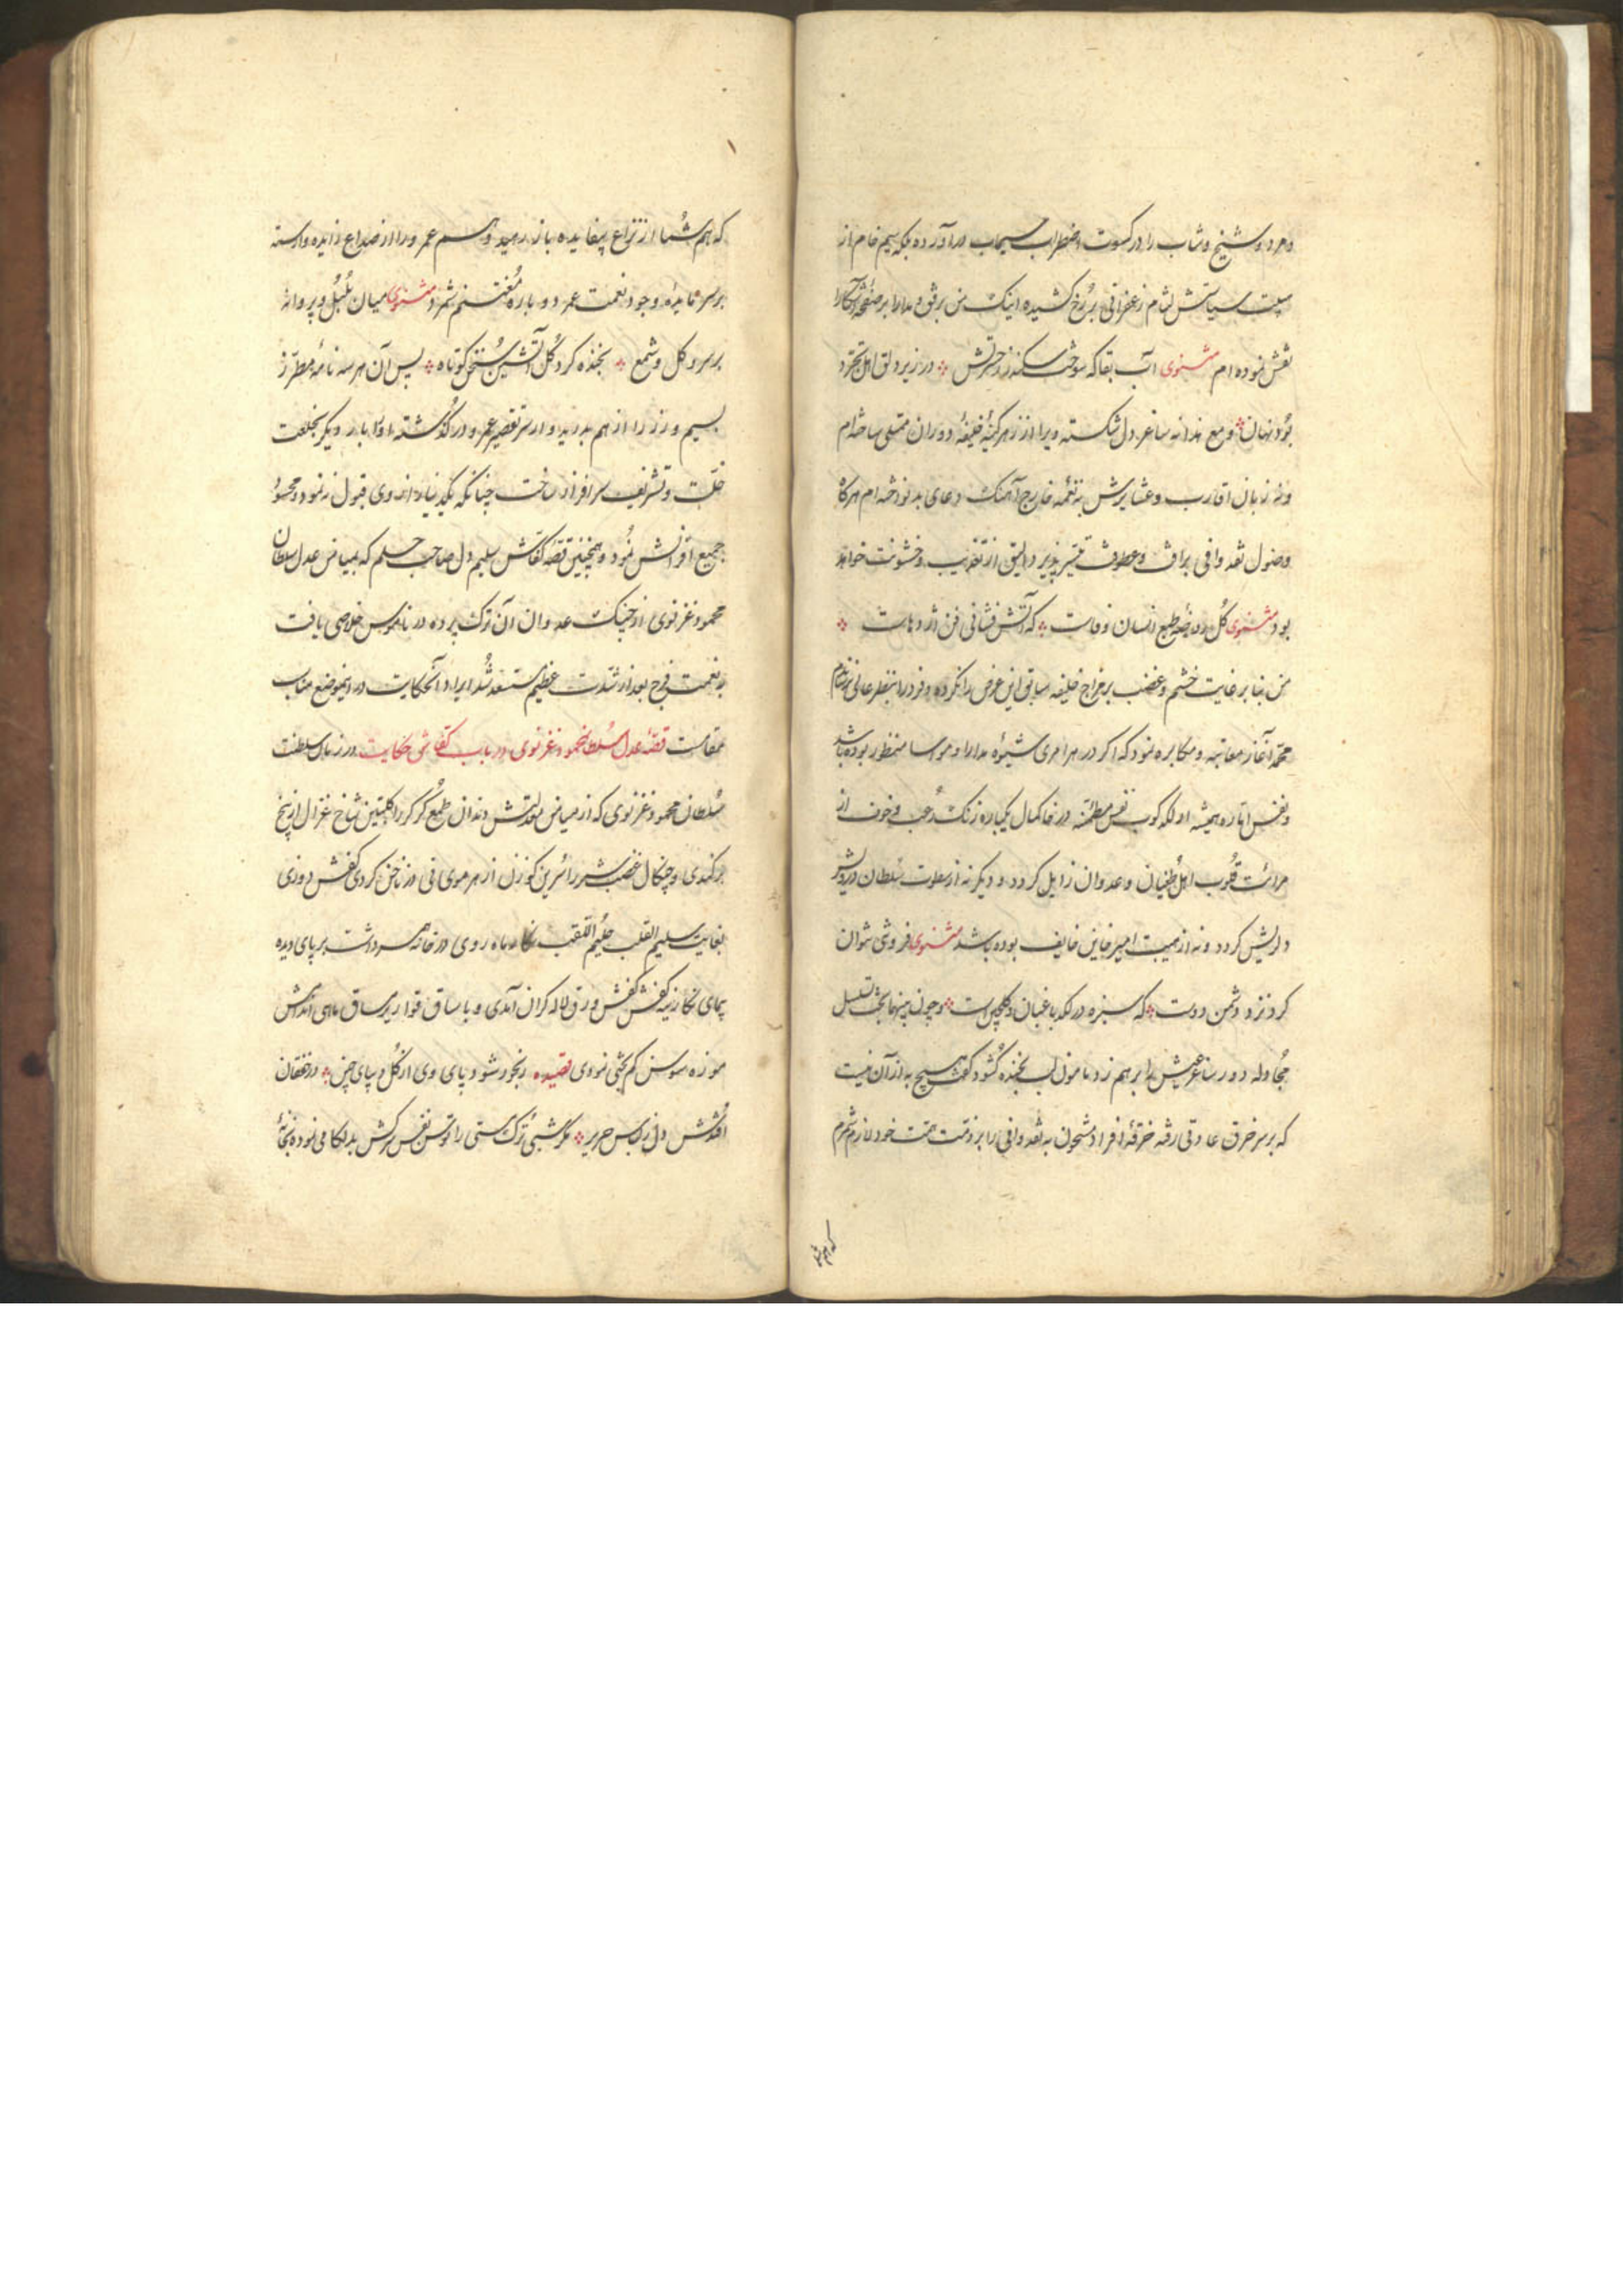 و مرد و شیخ و شاب را در کسوت اضطراب سیماب درآورده بلکه سیم خام از
سیاستش لثام زعفرانی بر رخ کشیده اینک من برفق و مدارا بر صفحه آشکارا
نقش نموده ام مثنوی آب بقا که سوخت سکندر ز حسرتش در زیر دلق اهل تجرد
بود نهان و مع هذا نه ساغر دل شکسته ویرا از زهر کینه خلیفه دوران ممتلی ساخته ام
و نه زبان اقارب و عشایرش به نغمه خارج آهنگ دعای بد نواخته ام هرگاه
وصول نقد وافی برافت و عطوفت تیسیر پذیر د الیق از تعذیب و خشونت خواهد
بود مثنوی گل روضه طبع انسان وفاست که آتش فشانی فن اژدهاست
من بنا بر غایت خشم و غضب بر خراج خلیفه سابق این عرض را نکرده و فرد را بنظر عالی
محمد آغاز معاتبه و مکابره نمود که اگر در هر امری شیوه مدارا و مواسا منظور بوده باشد
و نفس اماره همیشه لگدکوب نفس مطمئنه در خاکمال یکباره زنگ رعب و خوف از
مرائت قلوب اهل طغیان و عدوان زایل گردد و دیگر نه از سطوت سلطان درویش
دلریش گردد و نه از هیبت امیر خاین خایف بوده باشد مثنوی فروتنی نتوان
کرد نزد دشمن دوست که سبزه در لگد باغبان و گلچین است و چون مینها بحث تسلسل
مجادله دور ساغر عیش را بر هم زد مامون لب بخنده گشود که هیچ به از آن نیست
که بر سر خرق عادتی رفته خرقه افراد مشحون به نقد وافی را بر ذمت همت خود لازم شمرم
که هم شما
که هم شما از نزاع بیفایده باز رهید و هم عمرو را از صداع زایده وارسته
بر سر مایده وجود نعمت عمر دوباره مغتنم شمرد مثنوی میان بلبل و پروانه
بر سر گل و شمع بخنده کرد گل آتشین سخن کوتاه پس آن هر سه نامه مطرز
بسیم و زر را از هم بدرید و از سر تقصیر عمرو درگذشته او را بار دیگر بخلعت
خلت و تشریف سرافراز ساخت چنانکه یکدینار از وی قبول ننمود و محسود
جمیع اقرانش نمود و همچنین قصه کفاش سلیم دل صاحب حلم که بمیامن عدل سلطان
محمود غزنوی از چنگ عدوان آن ترک پرده در ناموس خلاصی یافت
به نعمت فرح بعد از شدت عظیم مستسعد شد ایراد آنحکایت در اینموضع مناسب
مقامست قصه عدل سلطان محمود غزنوی در باب کفاشی حکایت در زمان سلطنت
سلطان محمود غزنوی که از میامن معدلتش دندان طمع گرگ را کلبتین شاخ غزال از بیخ
برکندی و چنگال غضب شیر را سرین گوزن از هر موی نی در ناخن کردی کفش دوزی
بغایت سلیم القلب حلیم اللقب نگار ماه روی در خانه همسر داشت بر پای دیده
پیمای نگارینه کفش کفش ورق لاله گران آمدی و با ساق قواریر ساق ماهی اندامش
موزه سوسن کم بختی نمودی قصیده رنجور شود پای وی از گل و بپای چین در خفقان
افتدش دل ز لبس حریر مگر شبی ترک مستی را توسن نفس سرکش بدلگامی نموده بخانه